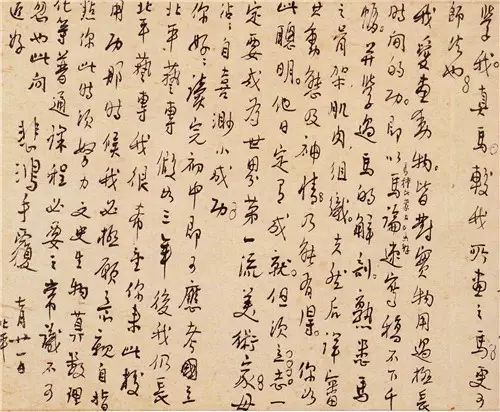 學我。真馬較我所畫之馬更可
師法也
我愛畫動物皆對實物用過極長
时间的功。即以馬論速写稿不下千
幅。并學過馬的解剖熟悉馬
之骨架肌肉组織夫然后详審
其動態及神情乃能有得。你如
此聰明。他日定有成就。但须立志一
定要成为世界第一流美術家毋
沾沾自喜渺小成功
你好好读完初中即可應考國立
北平藝專 假如三年後我仍長
北平藝專我很希望你来此校
用功那时候我必極願意親自指
點你此时须努力文史生物算數理
化等普通課程必要之常識不可
忽也此問
近好 悲鴻手覆
七月廿一日
北平